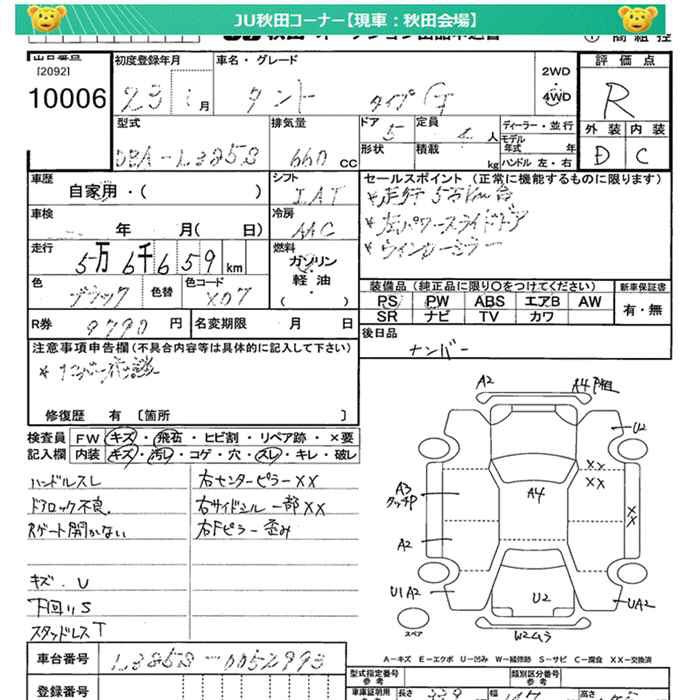 JU秋田コーナー【現車：秋田会場】
[2092]
10006
初度登録年月
23 月
車名・グレード
タント タイプG
2WD
4WD
評価点
R
外装 内装
D C
型式
DBA-L385S
排気量
660 cc
ドア
5
形状
定員
4 人
積載
kg
ディーラー・並行
モデル年式 年
ハンドル 左・右
車歴
自家用・( )
シフト
IAT
冷房
AAC
車検
年 月( 日)
走行
5万6千659km
燃料
ガソリン
軽油
( )
色
ブラック
色替
色コード
X07
R券
9790 円
名変期限 月 日
セールスポイント（正常に機能するものに限ります）
*走行5万km台
*左パワースライドドア
*ウインカーミラー
装備品（純正品に限り○をつけてください）
PS PW ABS エアB AW
SR ナビ TV カワ
新車保証書
有・無
後日品
ナンバー
注意事項申告欄（不具合内容等は具体的に記入して下さい）
修復歴 有 [箇所 ]
検査員記入欄
FW キズ・飛石・ヒビ割・リペア跡・×要
内装 キズ・汚レ・コゲ・穴・スレ・キレ・破レ
ハンドルスレ
ドアロック不良
Rゲート開かない
キズ.U
下回りS
スタッドレスT
右センターピラーXX
右サイドシル一部XX
右Fピラー歪み
A2
A4 P粗
U2
XX
XX
A3
タッチP
A4
XX
A2
U1A2
U2
UA2
スペア
W2ムラ
A-キズ E-エクボ U-凹み W-補修跡 S-サビ C-腐食 XX-交換済
車台番号
L385S-0052993
登録番号
型式指定番号
参考
類別区分番号
参考
車庫証明用
参考
長さ
339